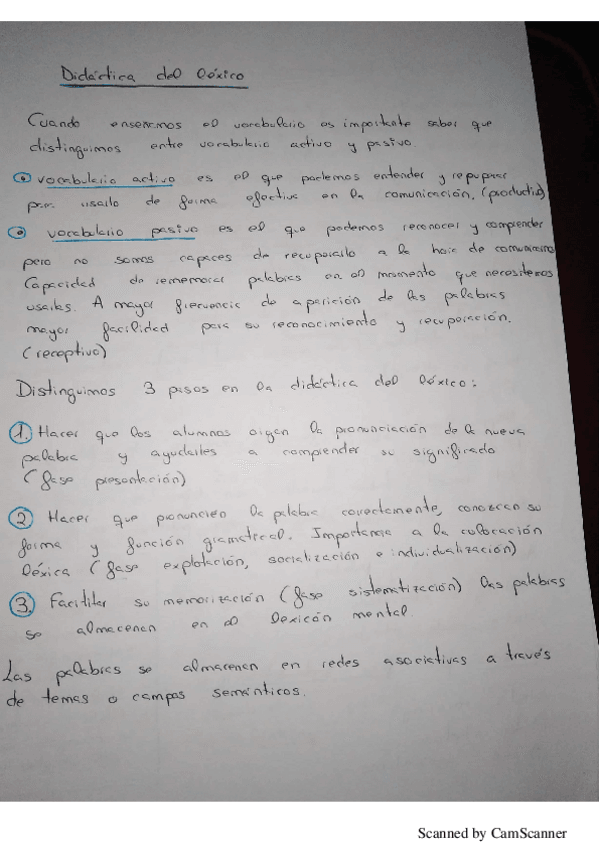 Didáctica del léxico
Cuando enseñamos el vocabulario es importante saber que
distinguimos entre vocabulario activo y pasivo.
vocabulario activo es el que podemos entender y recuperar
para usarlo de forma efectiva en la comunicación, (productivo)
vocabulario pasivo es el que podemos reconocer y comprender
pero no somos capaces de recuperarlo a la hora de comunicarnos
Capacidad de rememorar palabras en el momento que necesitemos
usarlas. A mayor frecuencia de aparición de las palabras
mayor facilidad para su reconocimiento y recuperación.
(receptivo)
Distinguimos 3 pasos en la didáctica del léxico:
1. Hacer que los alumnos oigan la pronunciación de la nueva
palabra y ayudarles a comprender su significado
(fase presentación)
2 Hacer que pronuncien la palabra correctamente, conozcan su
forma y función gramatical. Importancia a la colocación
léxica (fase explotación, socialización e individualización)
3. Facilitar su memorización (fase sistematización) las palabras
se almacenan en el lexicón mental.
Las palabras se almacenan en redes asociativas a través
de temas o campos semánticos.
Scanned by CamScanner